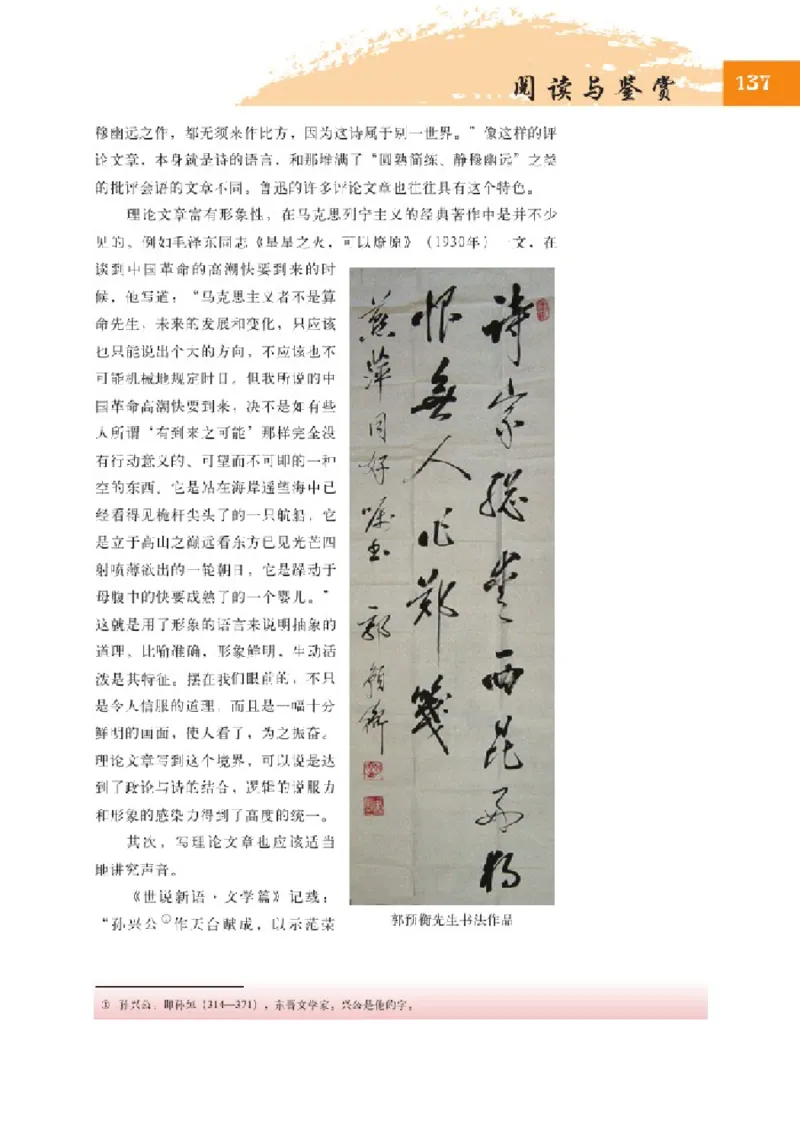 阅读与鉴赏
137
穆幽远之作，都无须来作比方，因为这诗属于别一世界。”像这样的评
论文章，本身就是诗的语言，和那堆满了“圆熟简练、静穆幽远”之类
的批评会语的文章不同。鲁迅的许多评论文章也往往具有这个特色。
理论文章富有形象性，在马克思列宁主义的经典著作中是并不少
见的。例如毛泽东同志《星星之火，可以燎原》（1930年）一文，在
谈到中国革命的高潮快要到来的时
候，他写道：“马克思主义者不是算
命先生，未来的发展和变化，只应该
也只能说出个大的方向，不应该也不
可能机械地规定时日。但我所说的中
国革命高潮快要到来，决不是如有些
人所谓‘有到来之可能’那样完全没
有行动意义的、可望而不可即的一种
空的东西。它是站在海岸遥望海中已
经看得见桅杆尖头了的一只航船，它
是立于高山之巅远看东方已见光芒四
射喷薄欲出的一轮朝日，它是躁动于
母腹中的快要成熟了的一个婴儿。”
这就是用了形象的语言来说明抽象的
道理。比喻准确，形象鲜明，生动活
泼是其特征。摆在我们眼前的，不只
是令人信服的道理，而且是一幅十分
鲜明的画面，使人看了，为之振奋。
理论文章写到这个境界，可以说是达
到了政论与诗的结合，逻辑的说服力
和形象的感染力得到了高度的统一。
其次，写理论文章也应该适当
地讲究声音。
《世说新语·文学篇》记载：
“孙兴公①作天台赋成，以示范荣
诗家总爱西昆好独
恨无人作郑笺
燕萍同好嘱书 郭预衡
郭预衡先生书法作品
① 孙兴公：即孙绰（314—371），东晋文学家。兴公是他的字。